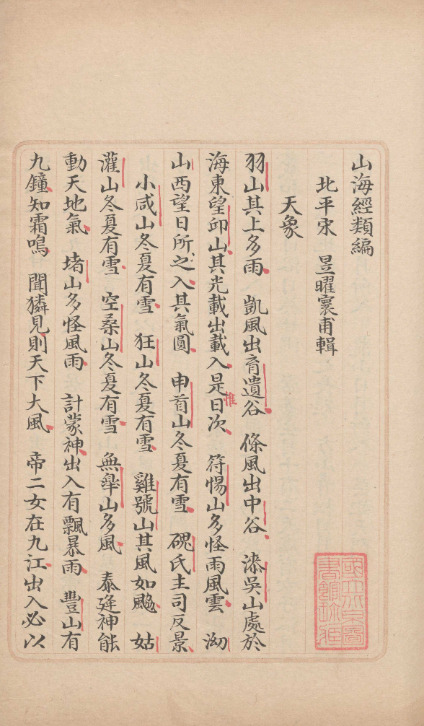 山海經類編
北平宋 昱曜寰甫輯
天象
羽山其上多雨 凱風出育遺谷 條風出中谷 漆吳山處於
海東望邱山其光載出載入是日次 符惕山多怪雨風雲 泑
惟
山西望日所之入其氣圓 申首山冬夏有雪 磈氏主司反景
小咸山冬夏有雪 狂山冬夏有雪 雞號山其風如飈 姑
灌山冬夏有雪 空桑山冬夏有雪 無臯山多風 泰逢神能
動天地氣 堵山多怪風雨 計蒙神出入有飄暴雨 豐山有
九鐘知霜鳴 聞獜見則天下大風 帝二女在九江出入必以